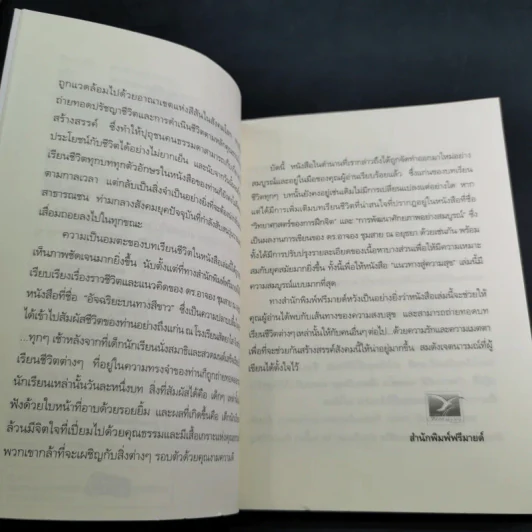 ถูกแวดล้อมไปด้วยอาณาเขตแห่งสีสันในสังคมโลก
ถ่ายทอดปรัชญาชีวิตและการดำเนินชีวิตตามหลัก
สร้างสรรค์ ซึ่งทำให้ปุถุชนคนธรรมดาสามารถ
ประโยชน์กับชีวิตได้อย่างไม่ยากเย็น และนับจากวัน
เรียนชีวิตทุกบททุกตัวอักษรในหนังสือของท่านก็
ตามกาลเวลา แต่กลับเป็นสิ่งจำเป็นอย่างยิ่งที่จะต้อง
สาธารณชน ท่ามกลางสังคมยุคปัจจุบันที่กำลังสับสน
เสื่อมถอยลงไปในทุกขณะ
ความเป็นอมตะของบทเรียนชีวิตในหนังสือเล่มนี้
เห็นภาพชัดเจนมากยิ่งขึ้น นับตั้งแต่ที่ทางสำนักพิมพ์
เรียบเรียงเรื่องราวชีวิตและแนวคิดของ ดร.อาจอง ชุมสาย
หนังสือที่ชื่อ "อัจฉริยะบนทางสีขาว" ซึ่งเป็นความ
ได้เข้าไปสัมผัสชีวิตของท่านอย่างถึงแก่น ณ โรงเรียนสัตยาไส
...ทุกๆ เช้าหลังจากที่เด็กนักเรียนนั่งสมาธิและสวดมนต์เสร็จ
เรียนชีวิตต่างๆ ที่อยู่ในความทรงจำของท่านก็ถูกถ่ายทอด
นักเรียนเหล่านั้นวันละหนึ่งบท สิ่งที่สัมผัสได้คือ เด็กๆ
ฟังด้วยใบหน้าที่อาบด้วยรอยยิ้ม และผลที่เกิดขึ้นคือ เด็ก
ล้วนมีจิตใจที่เปี่ยมไปด้วยคุณธรรมและมีเสื้อเกราะแห่งคุณ
พวกเขากล้าที่จะเผชิญกับสิ่งต่างๆ รอบตัวด้วยคุณงามความดี
บัดนี้ หนังสือในตำนานที่เรากล่าวถึงได้ถูกจัดทำออกมาใหม่อย่าง
สมบูรณ์และอยู่ในมือของคุณผู้อ่านเรียบร้อยแล้ว ซึ่งแก่นของบทเรียน
ชีวิตทุกๆ บทนั้นยังคงอยู่เช่นเดิมไม่มีการเปลี่ยนแปลงแต่อย่างใด หาก
แต่ได้มีการเพิ่มเติมบทเรียนชีวิตที่น่าสนใจที่ปรากฏอยู่ในหนังสือชื่อ
"วิทยาศาสตร์ของการฝึกจิต" และ "การพัฒนาศักยภาพอย่างสมบูรณ์" ซึ่ง
เป็นผลงานการเขียนของ ดร.อาจอง ชุมสาย ณ อยุธยา ด้วยเช่นกัน พร้อม
ทั้งได้มีการปรับปรุงรายละเอียดของเนื้อหาบางส่วนเพื่อให้มีความเหมาะ
สมกับยุคสมัยมากยิ่งขึ้น ทั้งนี้เพื่อให้หนังสือ "แนวทางสู่ความสุข" เล่มนี้มี
ความสมบูรณ์แบบมากที่สุด
ทางสำนักพิมพ์ฟรีมายด์หวังเป็นอย่างยิ่งว่าหนังสือเล่มนี้จะช่วยให้
คุณผู้อ่านได้พบกับเส้นทางของความสงบสุข และสามารถถ่ายทอดบท
เรียนชีวิตต่างๆเหล่านั้นให้กับคนอื่นๆต่อไป... ด้วยความรักและความเมตตา
เพื่อที่จะช่วยกันสร้างสรรค์สังคมนี้ให้น่าอยู่มากขึ้น สมดังเจตนารมณ์ที่ผู้
เขียนได้ตั้งใจไว้
สำนักพิมพ์ฟรีมายด์